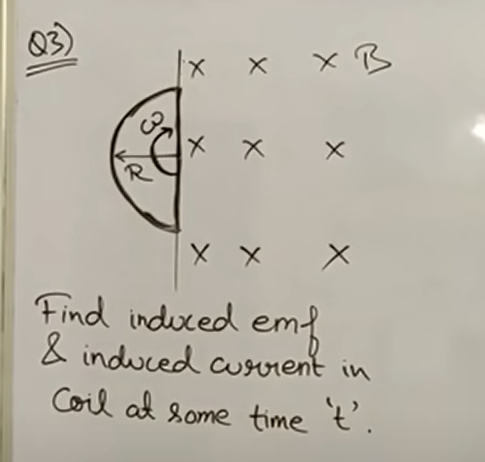 Q3)
× × × B
ω
× × ×
R
× × ×
Find induced emf
& induced current in
Coil at some time 't'.